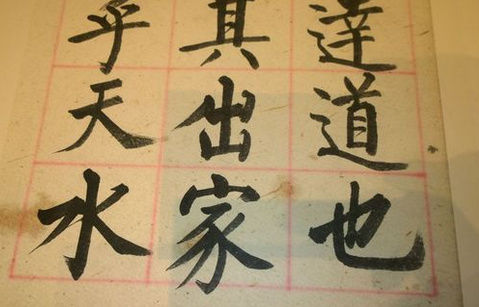 達道也
其出家
乎天水